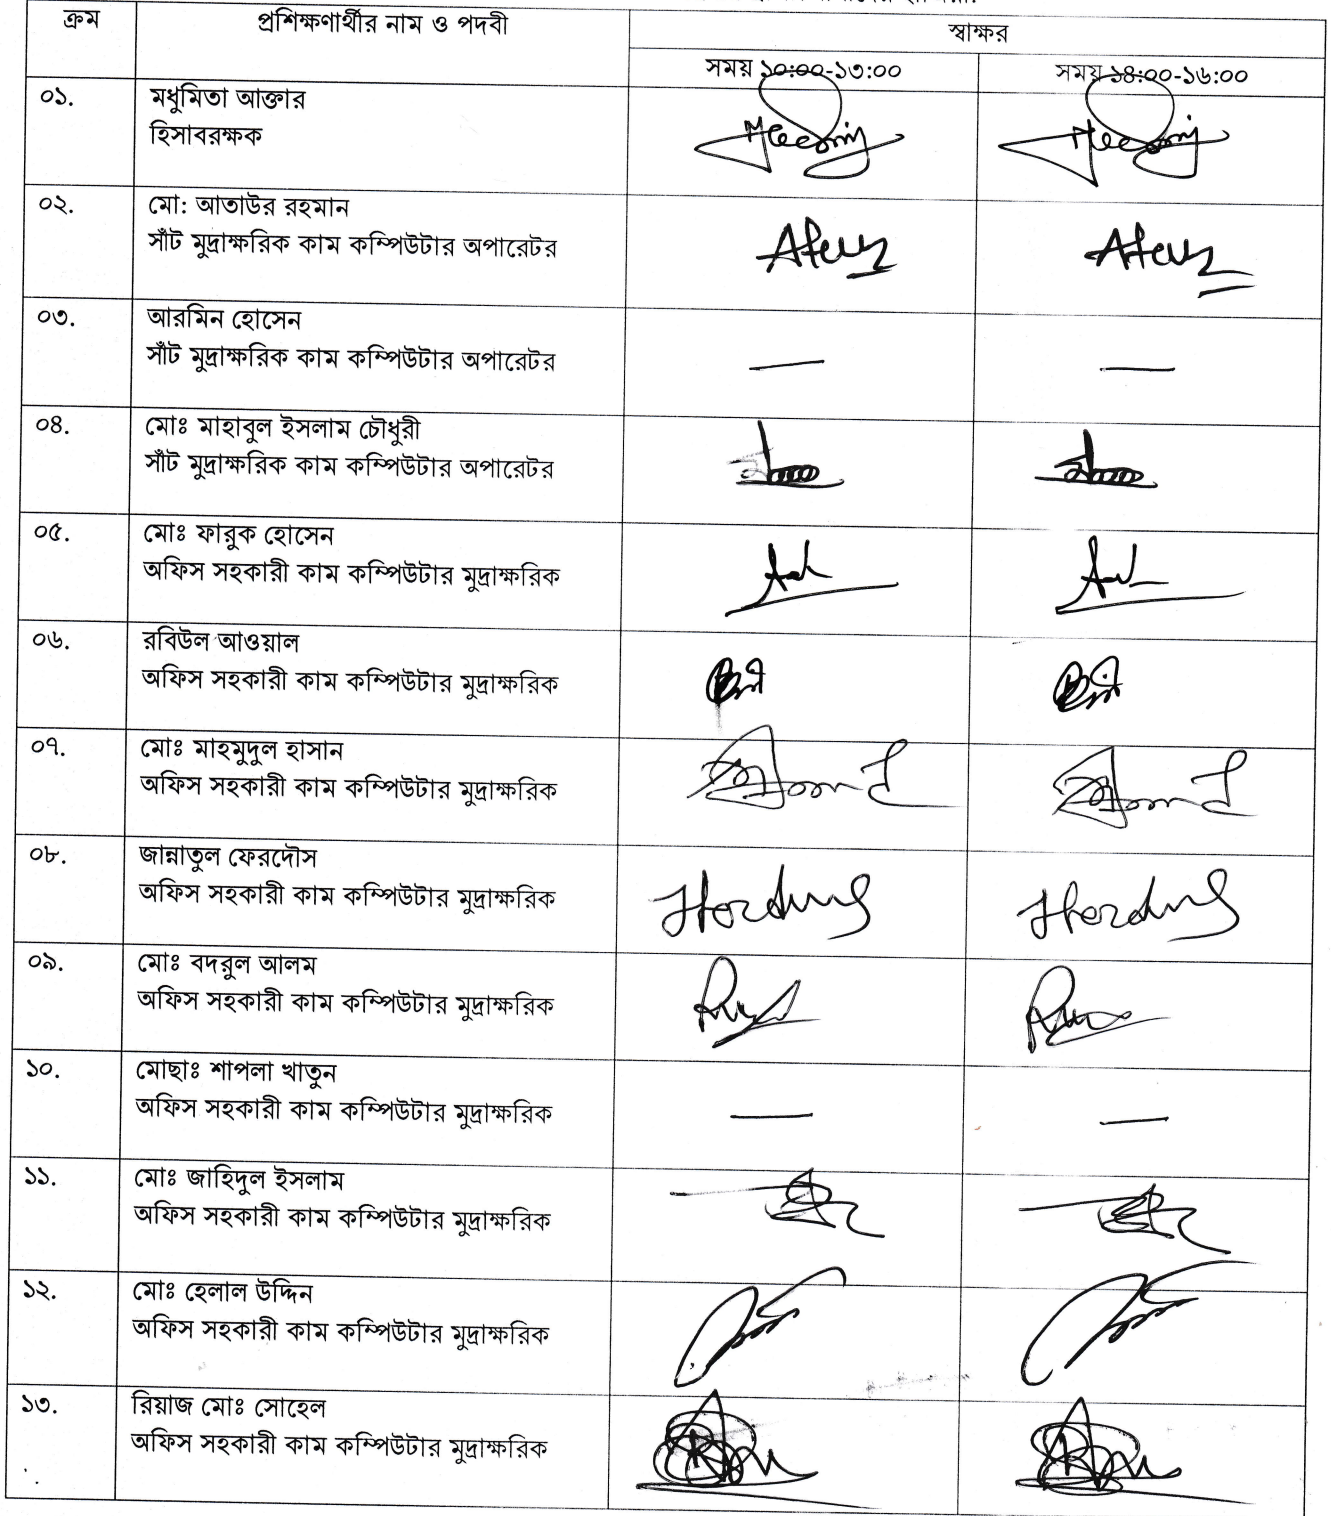 ক্রম
প্রশিক্ষণার্থীর নাম ও পদবী
স্বাক্ষর
সময় ১০:০০-১৩:০০
সময় ১৪:০০-১৬:০০
০১.
মধুমিতা আক্তার
হিসাবরক্ষক
০২.
মো: আতাউর রহমান
সাঁট মুদ্রাক্ষরিক কাম কম্পিউটার অপারেটর
০৩.
আরমিন হোসেন
সাঁট মুদ্রাক্ষরিক কাম কম্পিউটার অপারেটর
০৪.
মোঃ মাহাবুল ইসলাম চৌধুরী
সাঁট মুদ্রাক্ষরিক কাম কম্পিউটার অপারেটর
০৫.
মোঃ ফারুক হোসেন
অফিস সহকারী কাম কম্পিউটার মুদ্রাক্ষরিক
০৬.
রবিউল আওয়াল
অফিস সহকারী কাম কম্পিউটার মুদ্রাক্ষরিক
০৭.
মোঃ মাহমুদুল হাসান
অফিস সহকারী কাম কম্পিউটার মুদ্রাক্ষরিক
০৮.
জান্নাতুল ফেরদৌস
অফিস সহকারী কাম কম্পিউটার মুদ্রাক্ষরিক
০৯.
মোঃ বদরুল আলম
অফিস সহকারী কাম কম্পিউটার মুদ্রাক্ষরিক
১০.
মোছাঃ শাপলা খাতুন
অফিস সহকারী কাম কম্পিউটার মুদ্রাক্ষরিক
১১.
মোঃ জাহিদুল ইসলাম
অফিস সহকারী কাম কম্পিউটার মুদ্রাক্ষরিক
১২.
মোঃ হেলাল উদ্দিন
অফিস সহকারী কাম কম্পিউটার মুদ্রাক্ষরিক
১৩.
রিয়াজ মোঃ সোহেল
অফিস সহকারী কাম কম্পিউটার মুদ্রাক্ষরিক